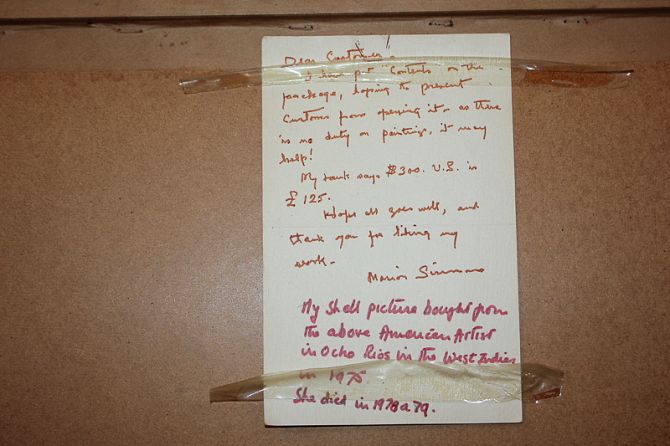 Dear Customer -
I have put "Contents" on the
package, hoping to prevent
Customs from opening it - as there
is no duty on paintings, it may
help!
My bank says $300. U.S. is
£125.
Hope all goes well, and
thank you for liking my
work -
Marion Simmons
My Shell picture bought from
the above American Artist
in Ocho Rios in the West Indies
in 1975
She died in 1978 a 79.